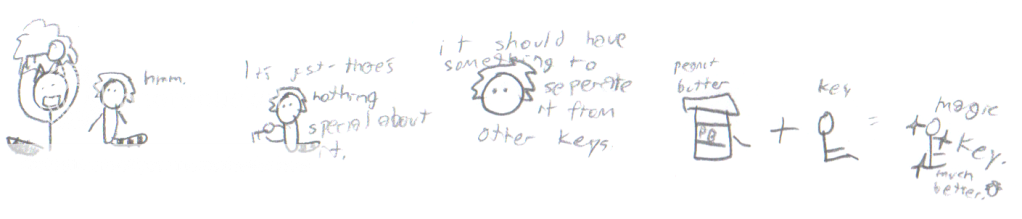 hmm.
It's just- there's
nothing
special about
it.
it should have
something to
seperate
it from
other keys.
peanut
butter
PB
+
key
=
magic
key.
much
better.